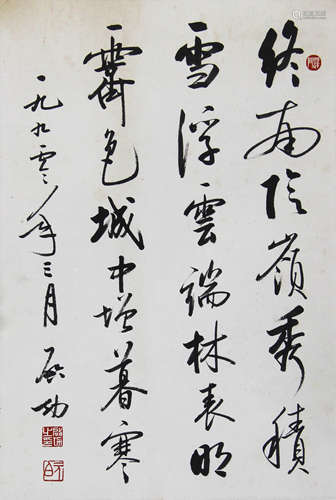 終南陰嶺秀積
雪浮雲端林表明
霽色城中增暮寒
一九九零年三月 啟功